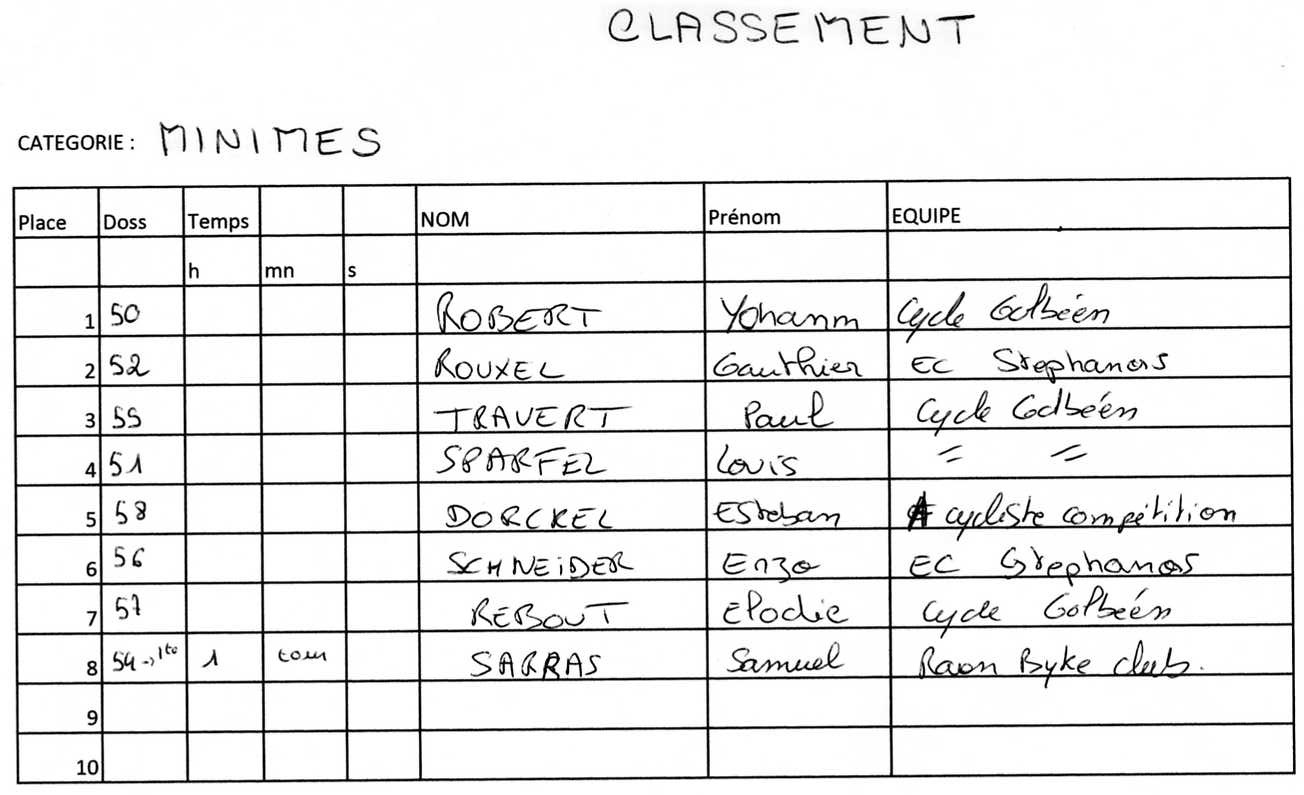 CLASSEMENT
CATEGORIE : MINIMES
Place Doss Temps NOM Prénom EQUIPE
h mn s
1 50 ROBERT Yohann Cycle Golbéén
2 52 ROUXEL Gauthier EC Stephanois
3 55 TRAVERT Paul Cycle Golbéén
4 51 SPARFEL Louis = =
5 58 DORCKEL Esteban cycliste compétition
6 56 SCHNEIDER Enzo EC Stephanois
7 57 REBOUT Elodie Cycle Golbéén
8 54 -> 1 tour SARRAS Samuel Raon Byke club.
9
10